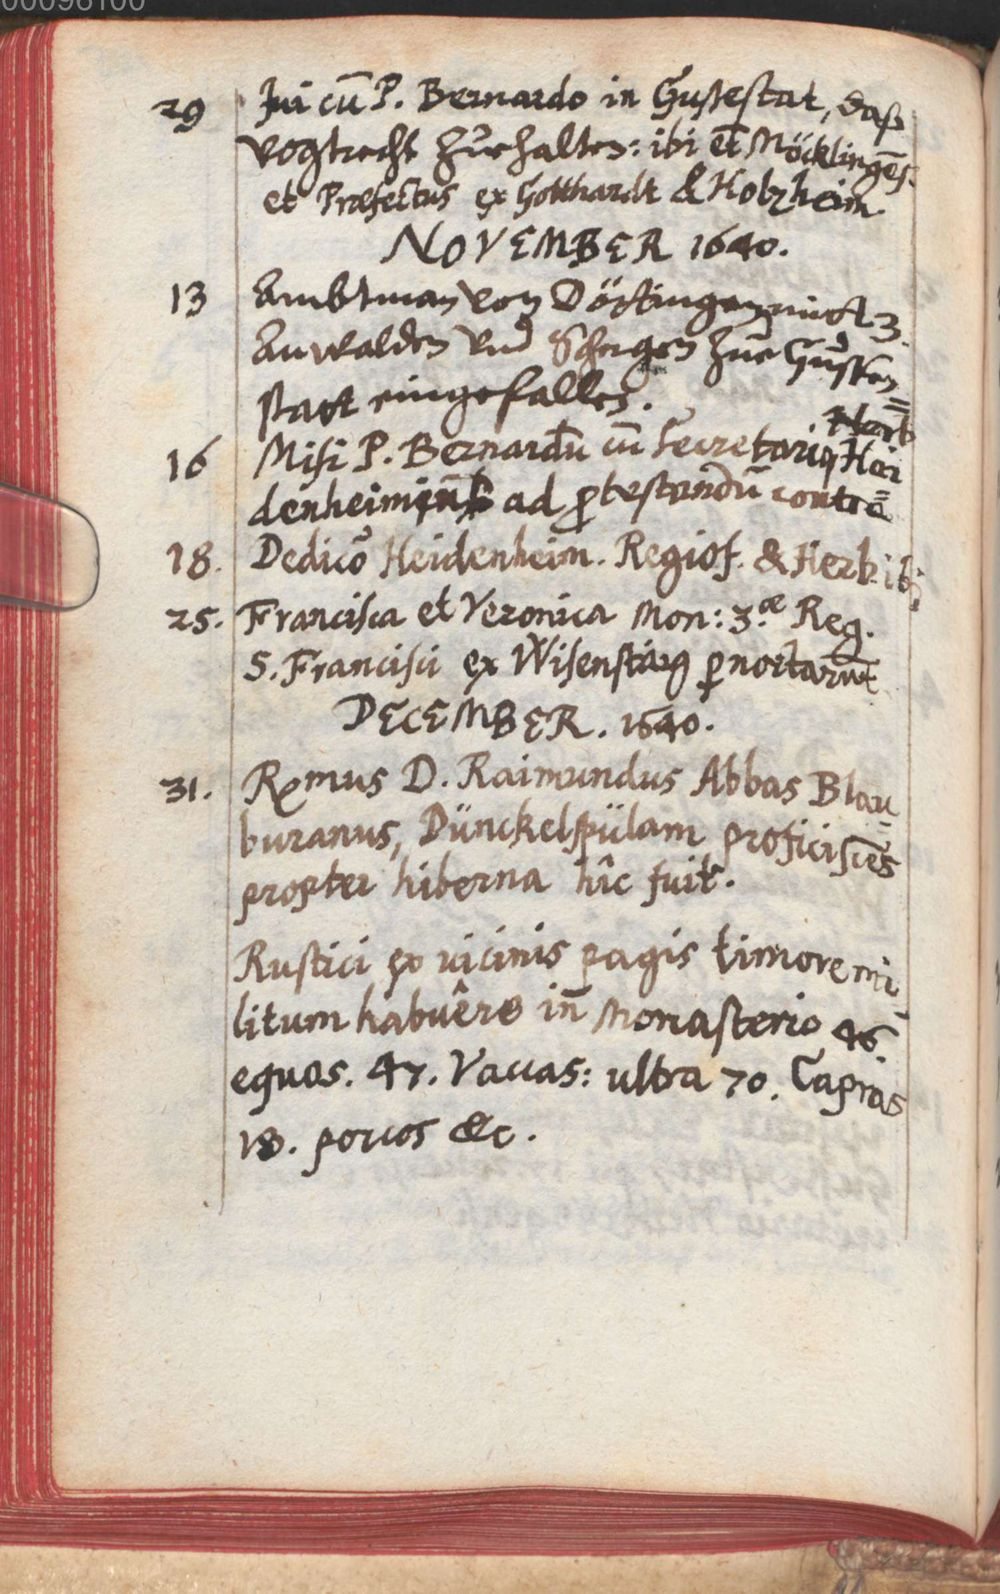 00098100
29 Ivi cū P. Bernardo in Gussestat, daß
Vogtrecht zuͤrhalten: ibi et Möcklingēs.
et Præfectus ex Gotthardt & Holzheim.
NOVEMBER 1640.
13 Ambtman von Döttingen mitt 3.
Anwalden und Schergen zue Gussen=
statt eingefallen.
16 Misi P. Bernardū cū Secretario Hei
denheimiens ad ꝓtestandū contra
18. Dedico Heidenheim. Regios. & Herb. ibi
25. Francisca et Veronica Mon: 3.æ Reg.
S. Francisci ex Wisenstaig ꝑnoctarūt
DECEMBER. 1640.
31. Rmus D. Raimundus Abbas Blau=
buranus, Dünckelspülam proficiscēs
propter hiberna hîc fuit.
Rustici ex vicinis pagis timore mi=
litum habuêre in Monasterio 46.
equos. 47. Vaccas: ultra 70. Capras
18. porcos &c.